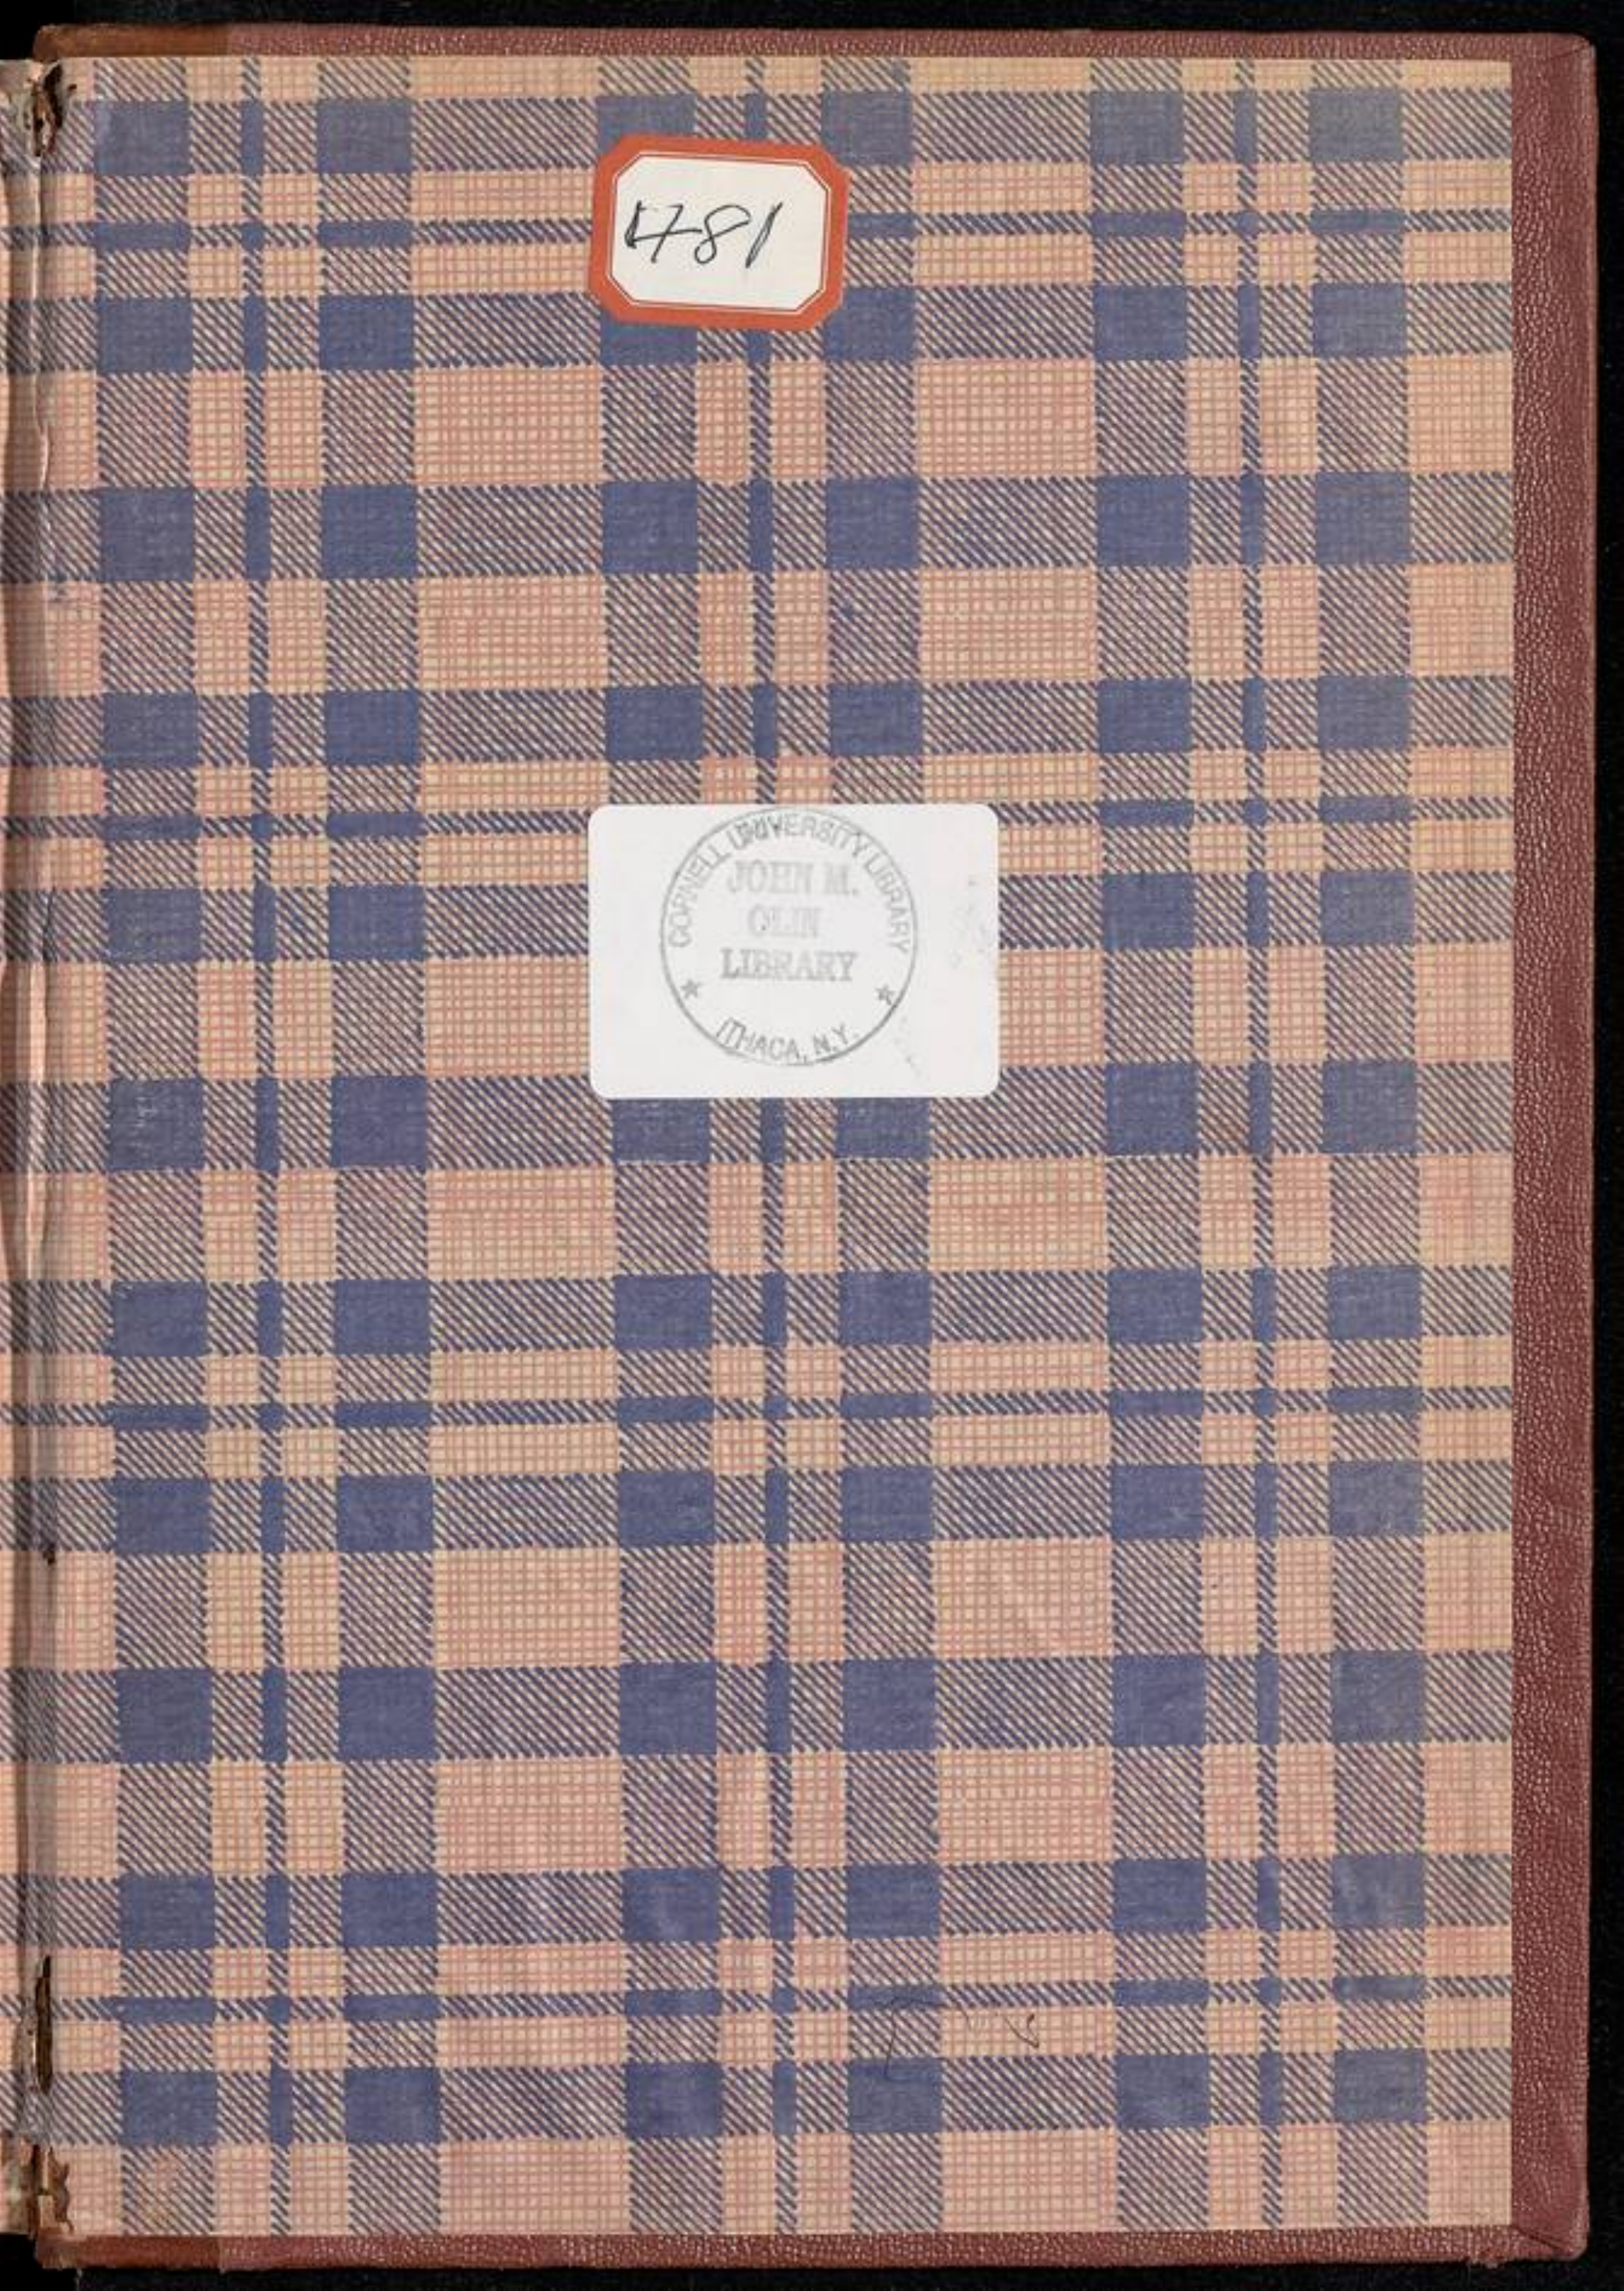 1781
CORNELL UNIVERSITY LIBRARY
JOHN M.
OLIN
LIBRARY
ITHACA, N.Y.